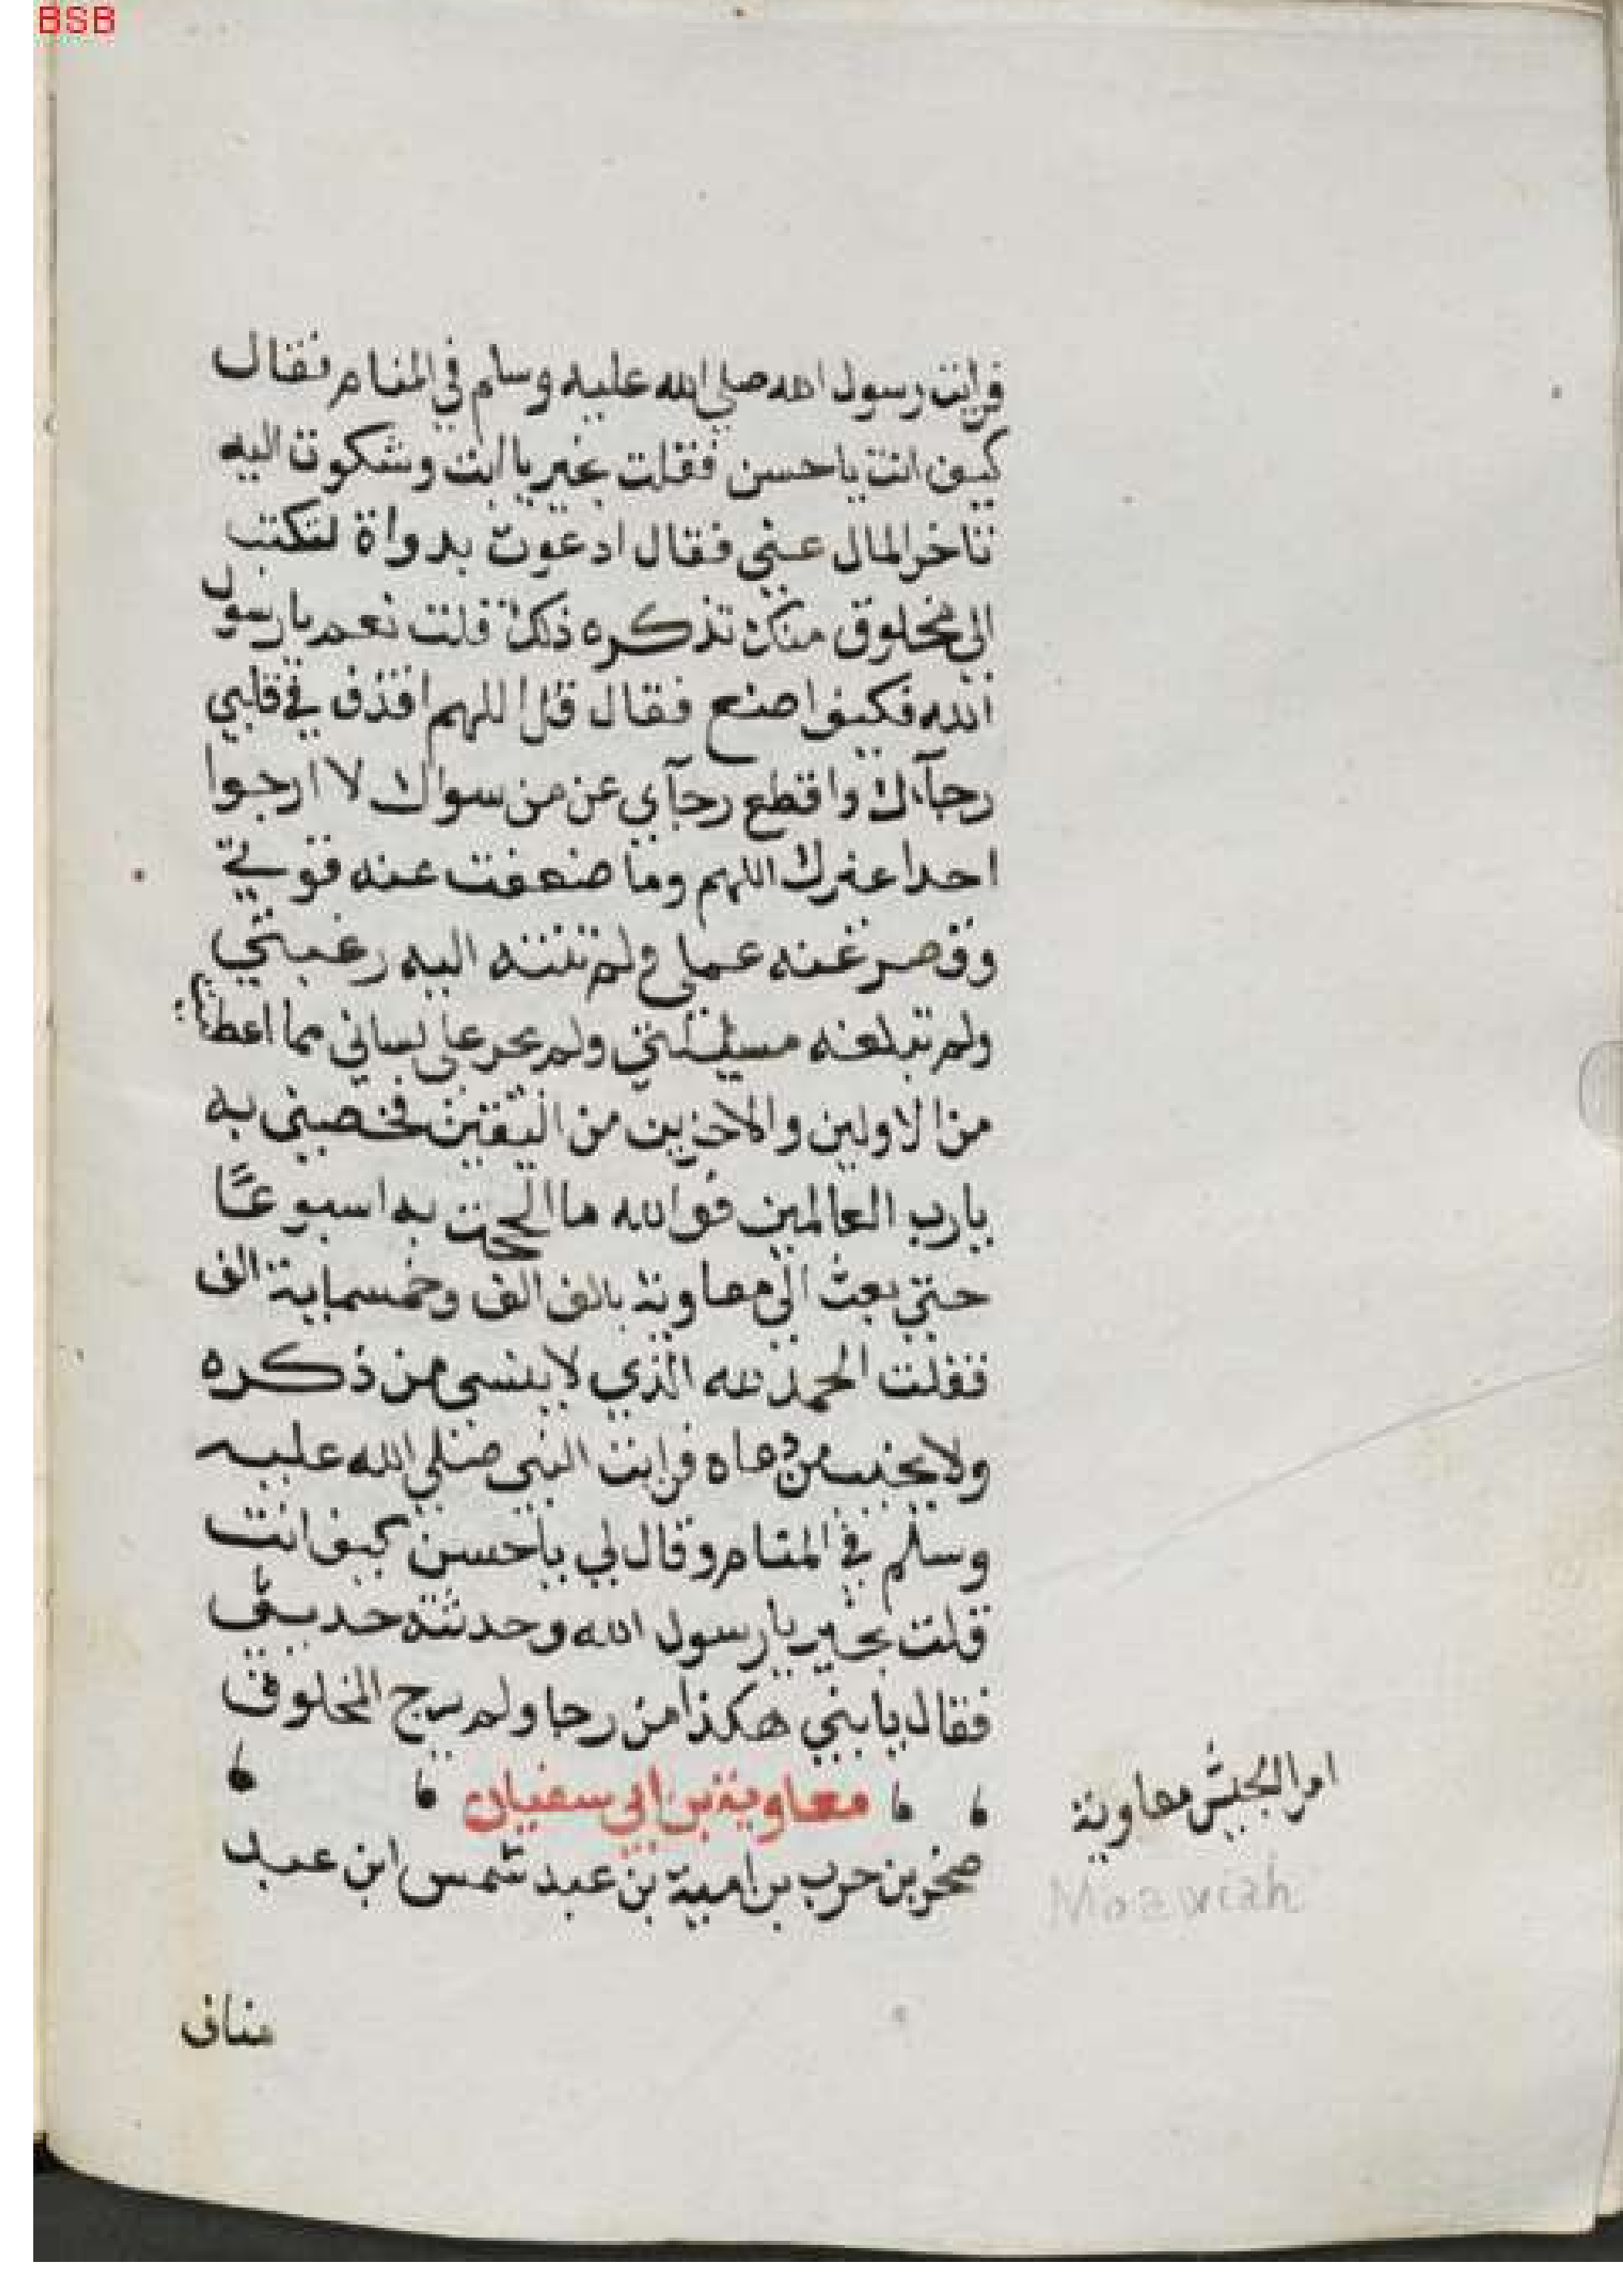 BSB
فرايت رسول الله صلي الله عليه وسلم في المنام فقال
كيف انت يا حسن فقلت بخير يا ابت وشكوت اليه
تاخر المال عني فقال ادعوت بدواة لتكتب
الى مخلوق منك تذكره ذلك قلت نعم يا رسول
الله فكيف اصنع فقال قل اللهم اقذف في قلبي
رجآءك واقطع رجآي عن من سواك لا ارجوا
احدا غيرك اللهم وما ضعفت عنه قوتي
وقصر عنه عملي ولم تنته اليه رغبتي
ولم تبلغه مسيلتي ولم يجر على لساني مما اعطيت
من الاولين والاخرين من اليقين فخصني به
يارب العالمين فوالله ما الححت به اسبوعًا
حتي بعث الي معاوية بالف الف وخمسماية الف
فقلت الحمد لله الذي لا ينسى من ذكره
ولا يخيب من دعاه فرايت النبي صلي الله عليه
وسلم في المنام وقال لي يا حسن كيف انت
قلت بخير يا رسول الله وحدثته حديثي
فقال يا بني هكذا من رجا ولم يرج المخلوق
معاوية بن ابي سفيان
صخر بن حرب بن امية بن عبد شمس ابن عبد
مناف
معاوية
Moawiah